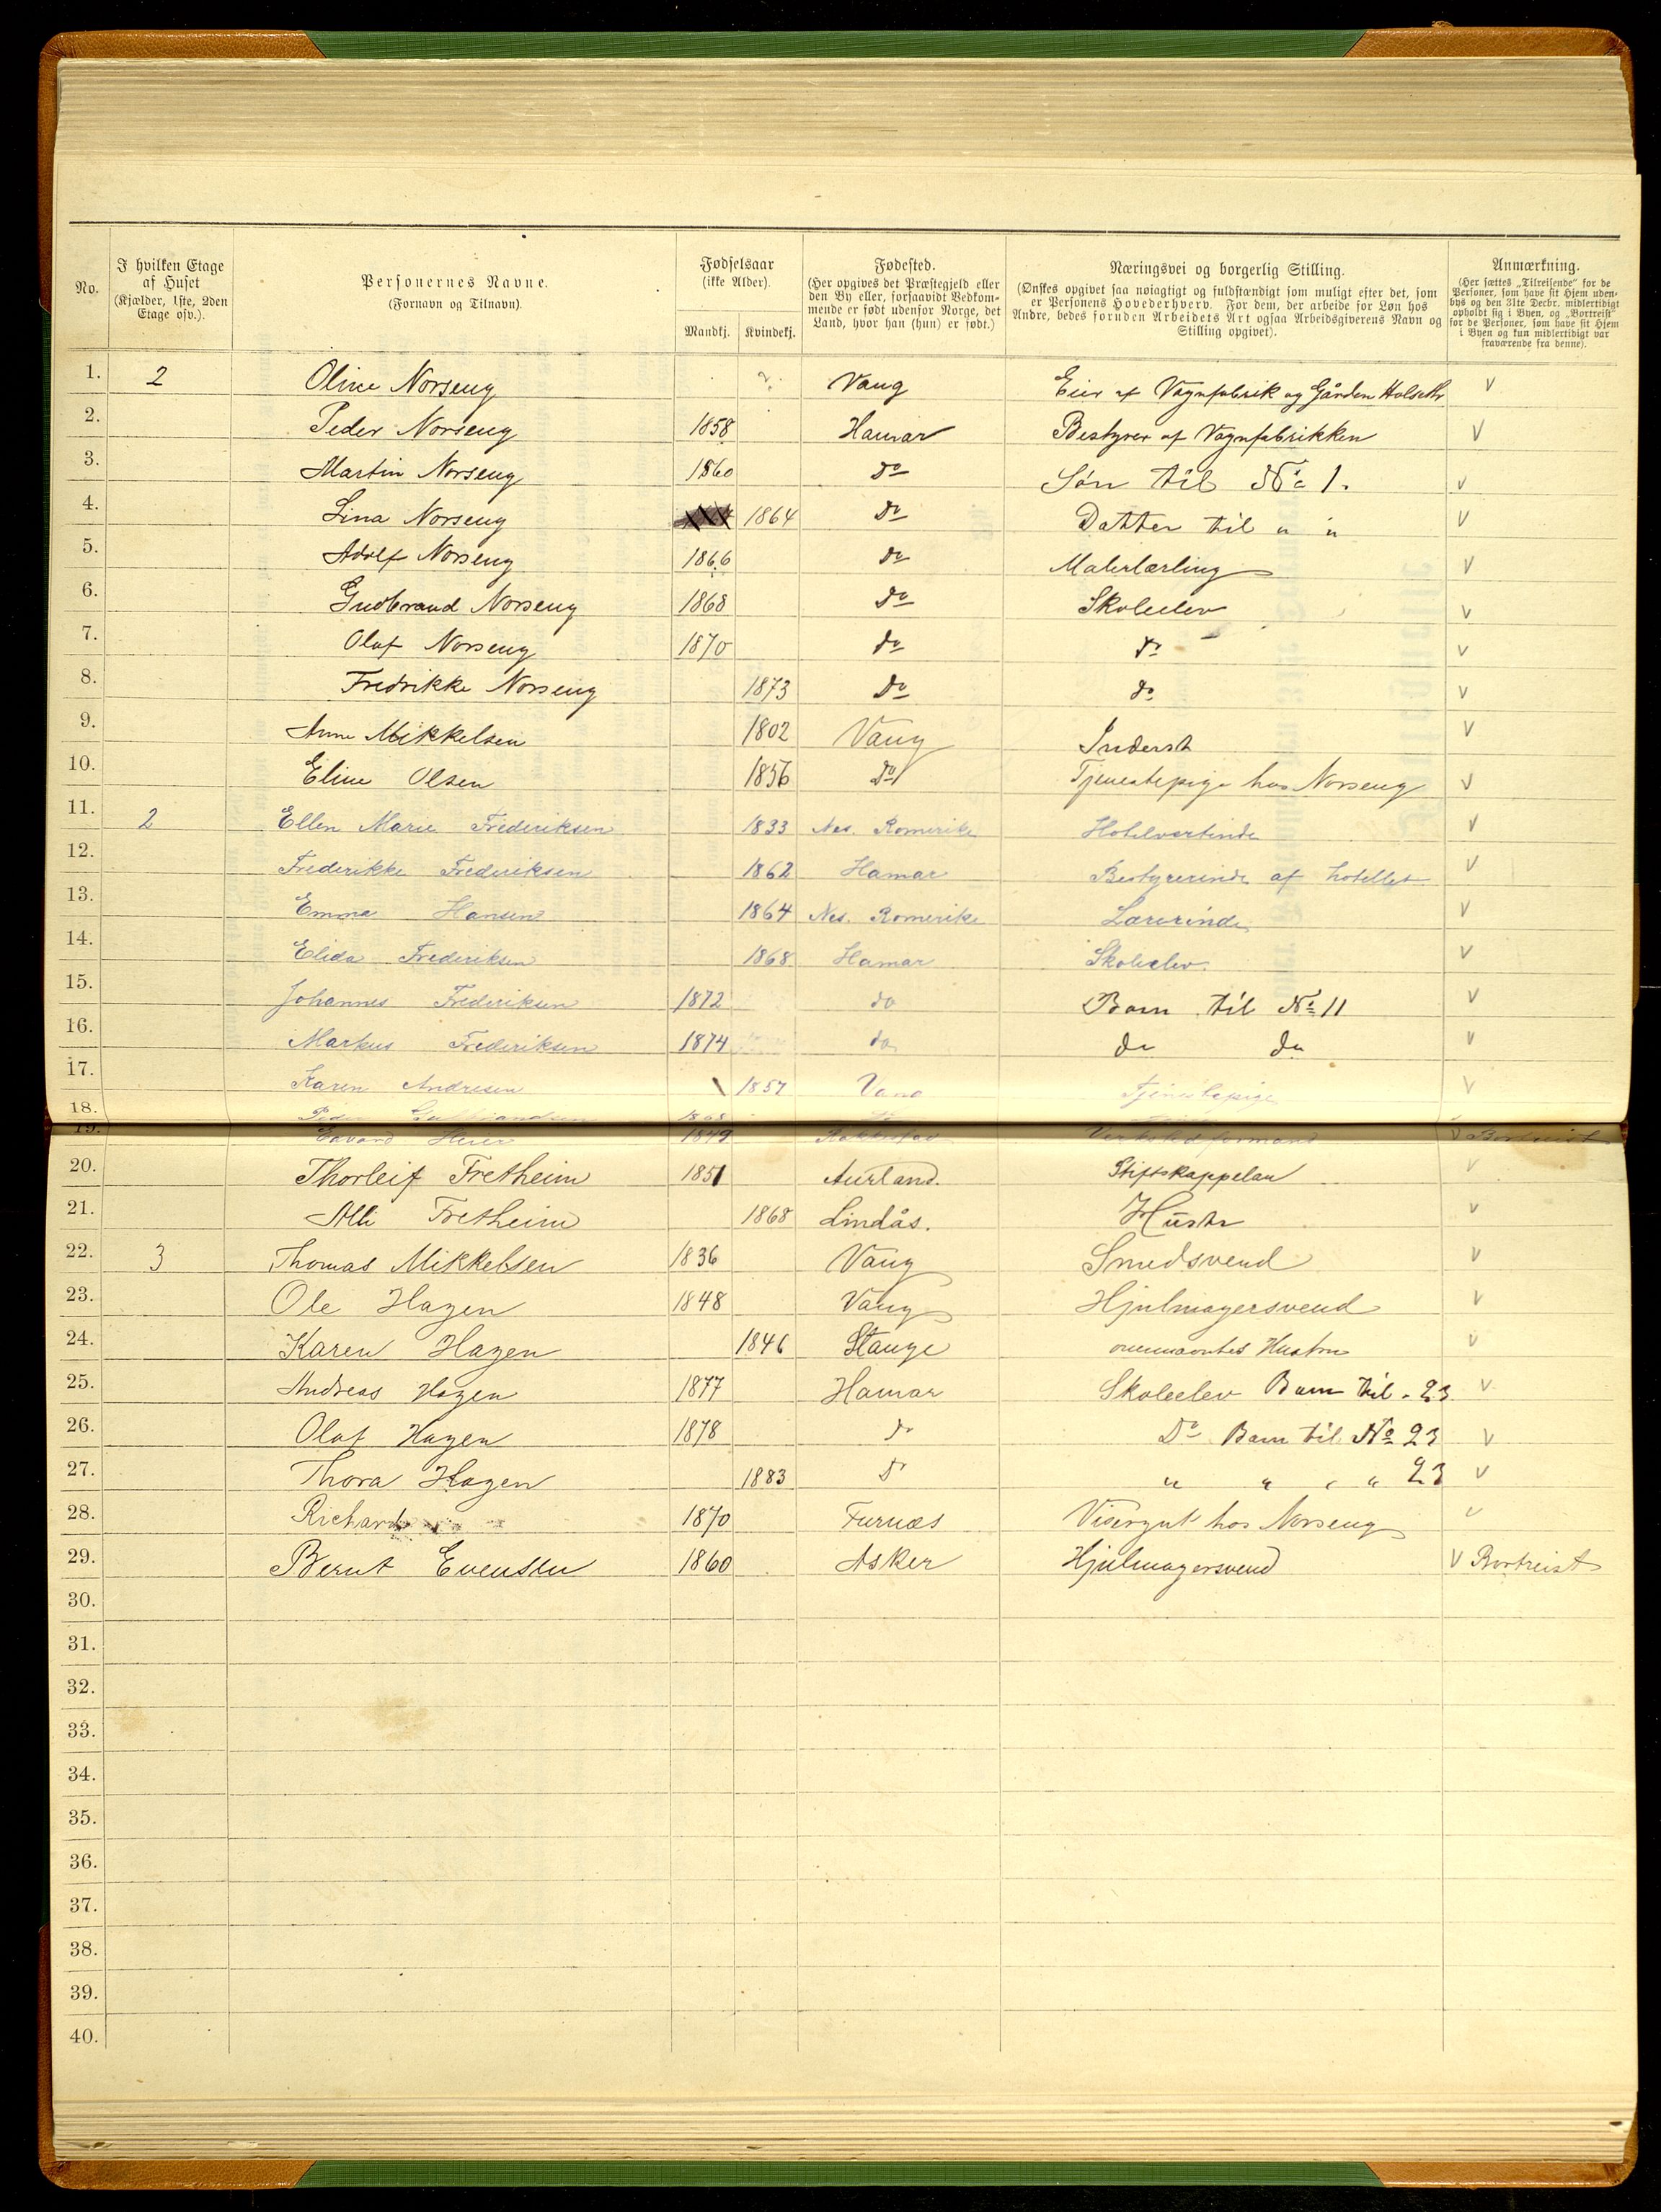 No.
I hvilken Etage af Huset (Kjælder, 1ste, 2den Etage osv.).
Personernes Navne. (Fornavn og Tilnavn).
Fødselsaar (ikke Alder).
Mandkj. Kvindekj.
Fødested. (Her opgives det Præstegjeld eller den By eller, forsaavidt Vedkommende er født udenfor Norge, det Land, hvor han (hun) er født.)
Næringsvei og borgerlig Stilling. (Ønskes opgivet saa nøiagtigt og fuldstændigt som muligt efter det, som er Personens Hovederhverv. For dem, der arbeide for Løn hos Andre, bedes foruden Arbeidets Art ogsaa Arbeidsgiverens Navn og Stilling opgivet).
Anmærkning. (Her sættes „Tilreisende“ for de Personer, som have sit Hjem udenbys og den 31te Decbr. midlertidigt opholdt sig i Byen, og „Bortreist“ for de Personer, som have sit Hjem i Byen og kun midlertidigt var fraværende fra denne).
1. 2 Oline Norseng ? Vang Eier af Vognfabrik og Gården Holseth V
2. Peder Norseng 1858 Hamar Bestyrer af Vognfabrikken V
3. Martin Norseng 1860 do Søn til No 1. V
4. Lina Norseng 1864 do Datter til " " V
5. Adolf Norseng 1866 do Malerlærling V
6. Gudbrand Norseng 1868 do Skoleelev V
7. Olaf Norseng 1870 do do V
8. Fredrikke Norseng 1873 do do V
9. Anne Mikkelsen 1802 Vang Inderst V
10. Eline Olsen 1856 do Tjenestepige hos Norseng V
11. 2 Ellen Marie Frederiksen 1833 Nes. Romerike Hotelvertinde V
12. Frederikke Frederiksen 1862 Hamar Bestyrerinde af hotellet V
13. Emma Hansen 1864 Nes. Romerike Lærerinde V
14. Elida Frederiksen 1868 Hamar Skoleelev. V
15. Johannes Frederiksen 1872 do Barn til No 11 V
16. Markus Frederiksen 1874 do do do V
17. Karen Andresen 1857 Vang Tjenestepige V
18. Peder Gulbrandsen 1868
19. Edvard Heier 1849 Værkstedformand V Bortreist
20. Thorleif Fretheim 1851 Aurland. Stiftskappelan V
21. Alli Fretheim 1868 Lindås. Hustr V
22. 3 Thomas Mikkelsen 1836 Vang Smedsvend V
23. Ole Hagen 1848 Vang Hjulmagersvend V
24. Karen Hagen 1846 Stange ovennævntes Hustru V
25. Andreas Hagen 1877 Hamar Skoleelev Barn til " 23 V
26. Olaf Hagen 1878 do Do Barn til No 23 V
27. Thora Hagen 1883 do " " " " 23 V
28. Richard 1870 Furnæs Visergut hos Norseng V
29. Bernt Evensen 1860 Asker Hjulmagersvend V Bortreist
30.
31.
32.
33.
34.
35.
36.
37.
38.
39.
40.